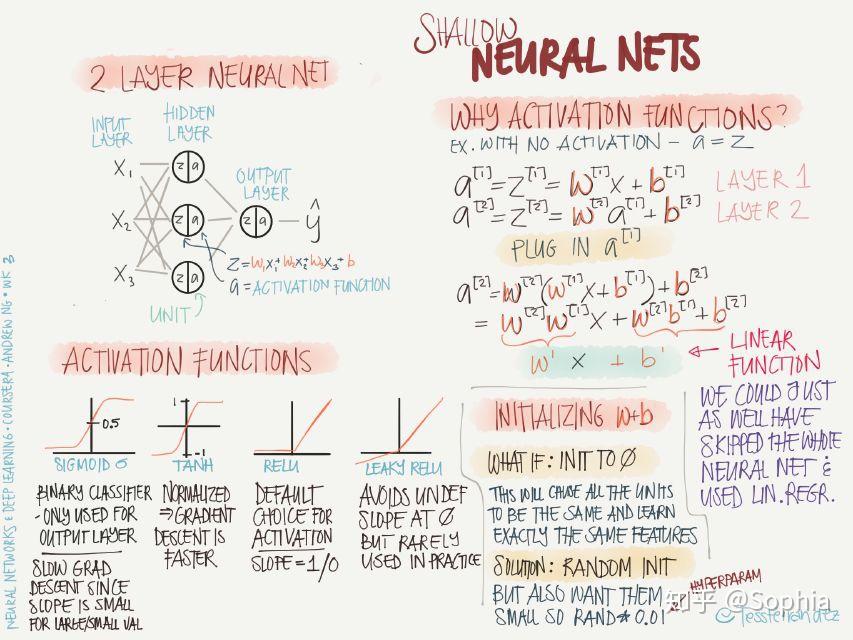 SHALLOW
NEURAL NETS
2 LAYER NEURAL NET
INPUT
LAYER
HIDDEN
LAYER
OUTPUT
LAYER
X₁
X₂
X₃
z a
z a
z a
z a
ŷ
z = w₁x₁ + w₂x₂ + w₃x₃ + b
a = ACTIVATION FUNCTION
UNIT
ACTIVATION FUNCTIONS
0.5
SIGMOID σ
BINARY CLASSIFIER
- ONLY USED FOR
OUTPUT LAYER
SLOW GRAD
DESCENT SINCE
SLOPE IS SMALL
FOR LARGE/SMALL VAL
1
-1
TANH
NORMALIZED
⇒ GRADIENT
DESCENT IS
FASTER
RELU
DEFAULT
CHOICE FOR
ACTIVATION
SLOPE = 1/0
LEAKY RELU
AVOIDS UNDEF
SLOPE AT 0
BUT RARELY
USED IN PRACTICE
WHY ACTIVATION FUNCTIONS?
EX. WITH NO ACTIVATION - a = z
a^[1] = z^[1] = w^[1]x + b^[1] LAYER 1
a^[2] = z^[2] = w^[2]a^[1] + b^[2] LAYER 2
PLUG IN a^[1]
a^[2] = w^[2](w^[1]x + b^[1]) + b^[2]
= w^[2]w^[1]x + w^[2]b^[1] + b^[2]
w' x + b'
LINEAR
FUNCTION
WE COULD JUST
AS WELL HAVE
SKIPPED THE WHOLE
NEURAL NET &
USED LIN. REGR.
INITIALIZING w+b
WHAT IF: INIT TO 0
THIS WILL CAUSE ALL THE UNITS
TO BE THE SAME AND LEARN
EXACTLY THE SAME FEATURES
SOLUTION: RANDOM INIT
BUT ALSO WANT THEM
SMALL SO RAND * 0.01
HYPERPARAM
NEURAL NETWORKS & DEEP LEARNING · COURSERA · ANDREW NG · WK 3
知乎 @Sophia